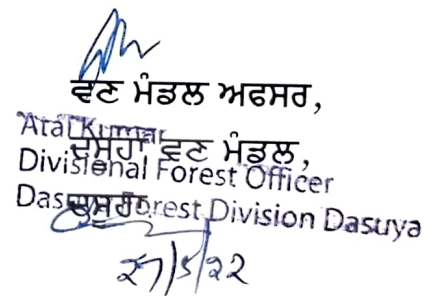 ਵਣ ਮੰਡਲ ਅਫਸਰ,
Atal Kumar
ਦਸੂਹਾ ਵਣ ਮੰਡਲ,
Divisional Forest Officer
Dasuya Forest Division Dasuya
ਦਸੂਹਾ।
27/5/22